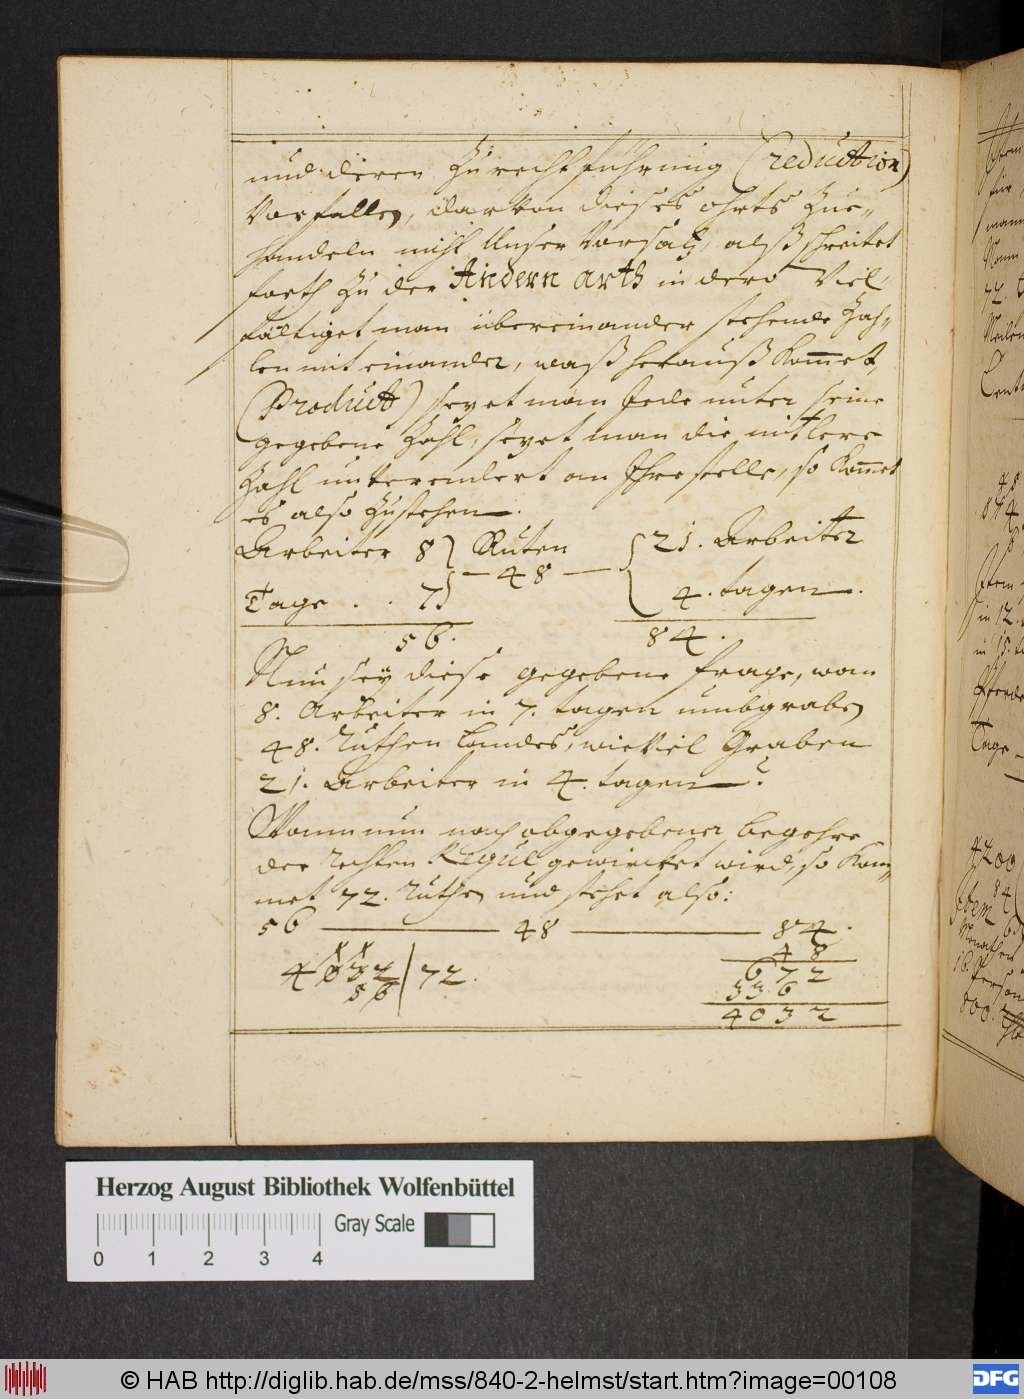 und deren Zurechtführung (reduction)
Vorfallen, darvon dieses ohrts Zue-
handeln nicht Unser Vorsatz, alß schreitet
forth zu der Andern arth in dero Viel-
fältiget man übereinander stehende Zah-
len mit einander, waß herauß kommet,
(Product) setzet man Jede unter seine
gegebene Zahl, setzet man die mitlere
Zahl unverendert an Ihre stelle, so kommet
es also zustehen.
Arbeiter 8 } Ruten { 21. Arbeiter
— 48 —
Tage . . 7 } { 4. tagen.
56. 84.
Nun sey diese gegebene frage, wan
8. Arbeiter in 7. tagen umbgraben
48. Ruthen Landes, wieviel Graben
21. Arbeiter in 4. tagen?
Wann nun nach abgegebener begehre
der rechten Regul gewircket wird, so kom-
met 72. Ruthen und stehet also:
56 — 48 — 84.
48
4032 | 72. 672
56 336
4032
Herzog August Bibliothek Wolfenbüttel
Gray Scale
0 1 2 3 4
© HAB http://diglib.hab.de/mss/840-2-helmst/start.htm?image=00108
DFG